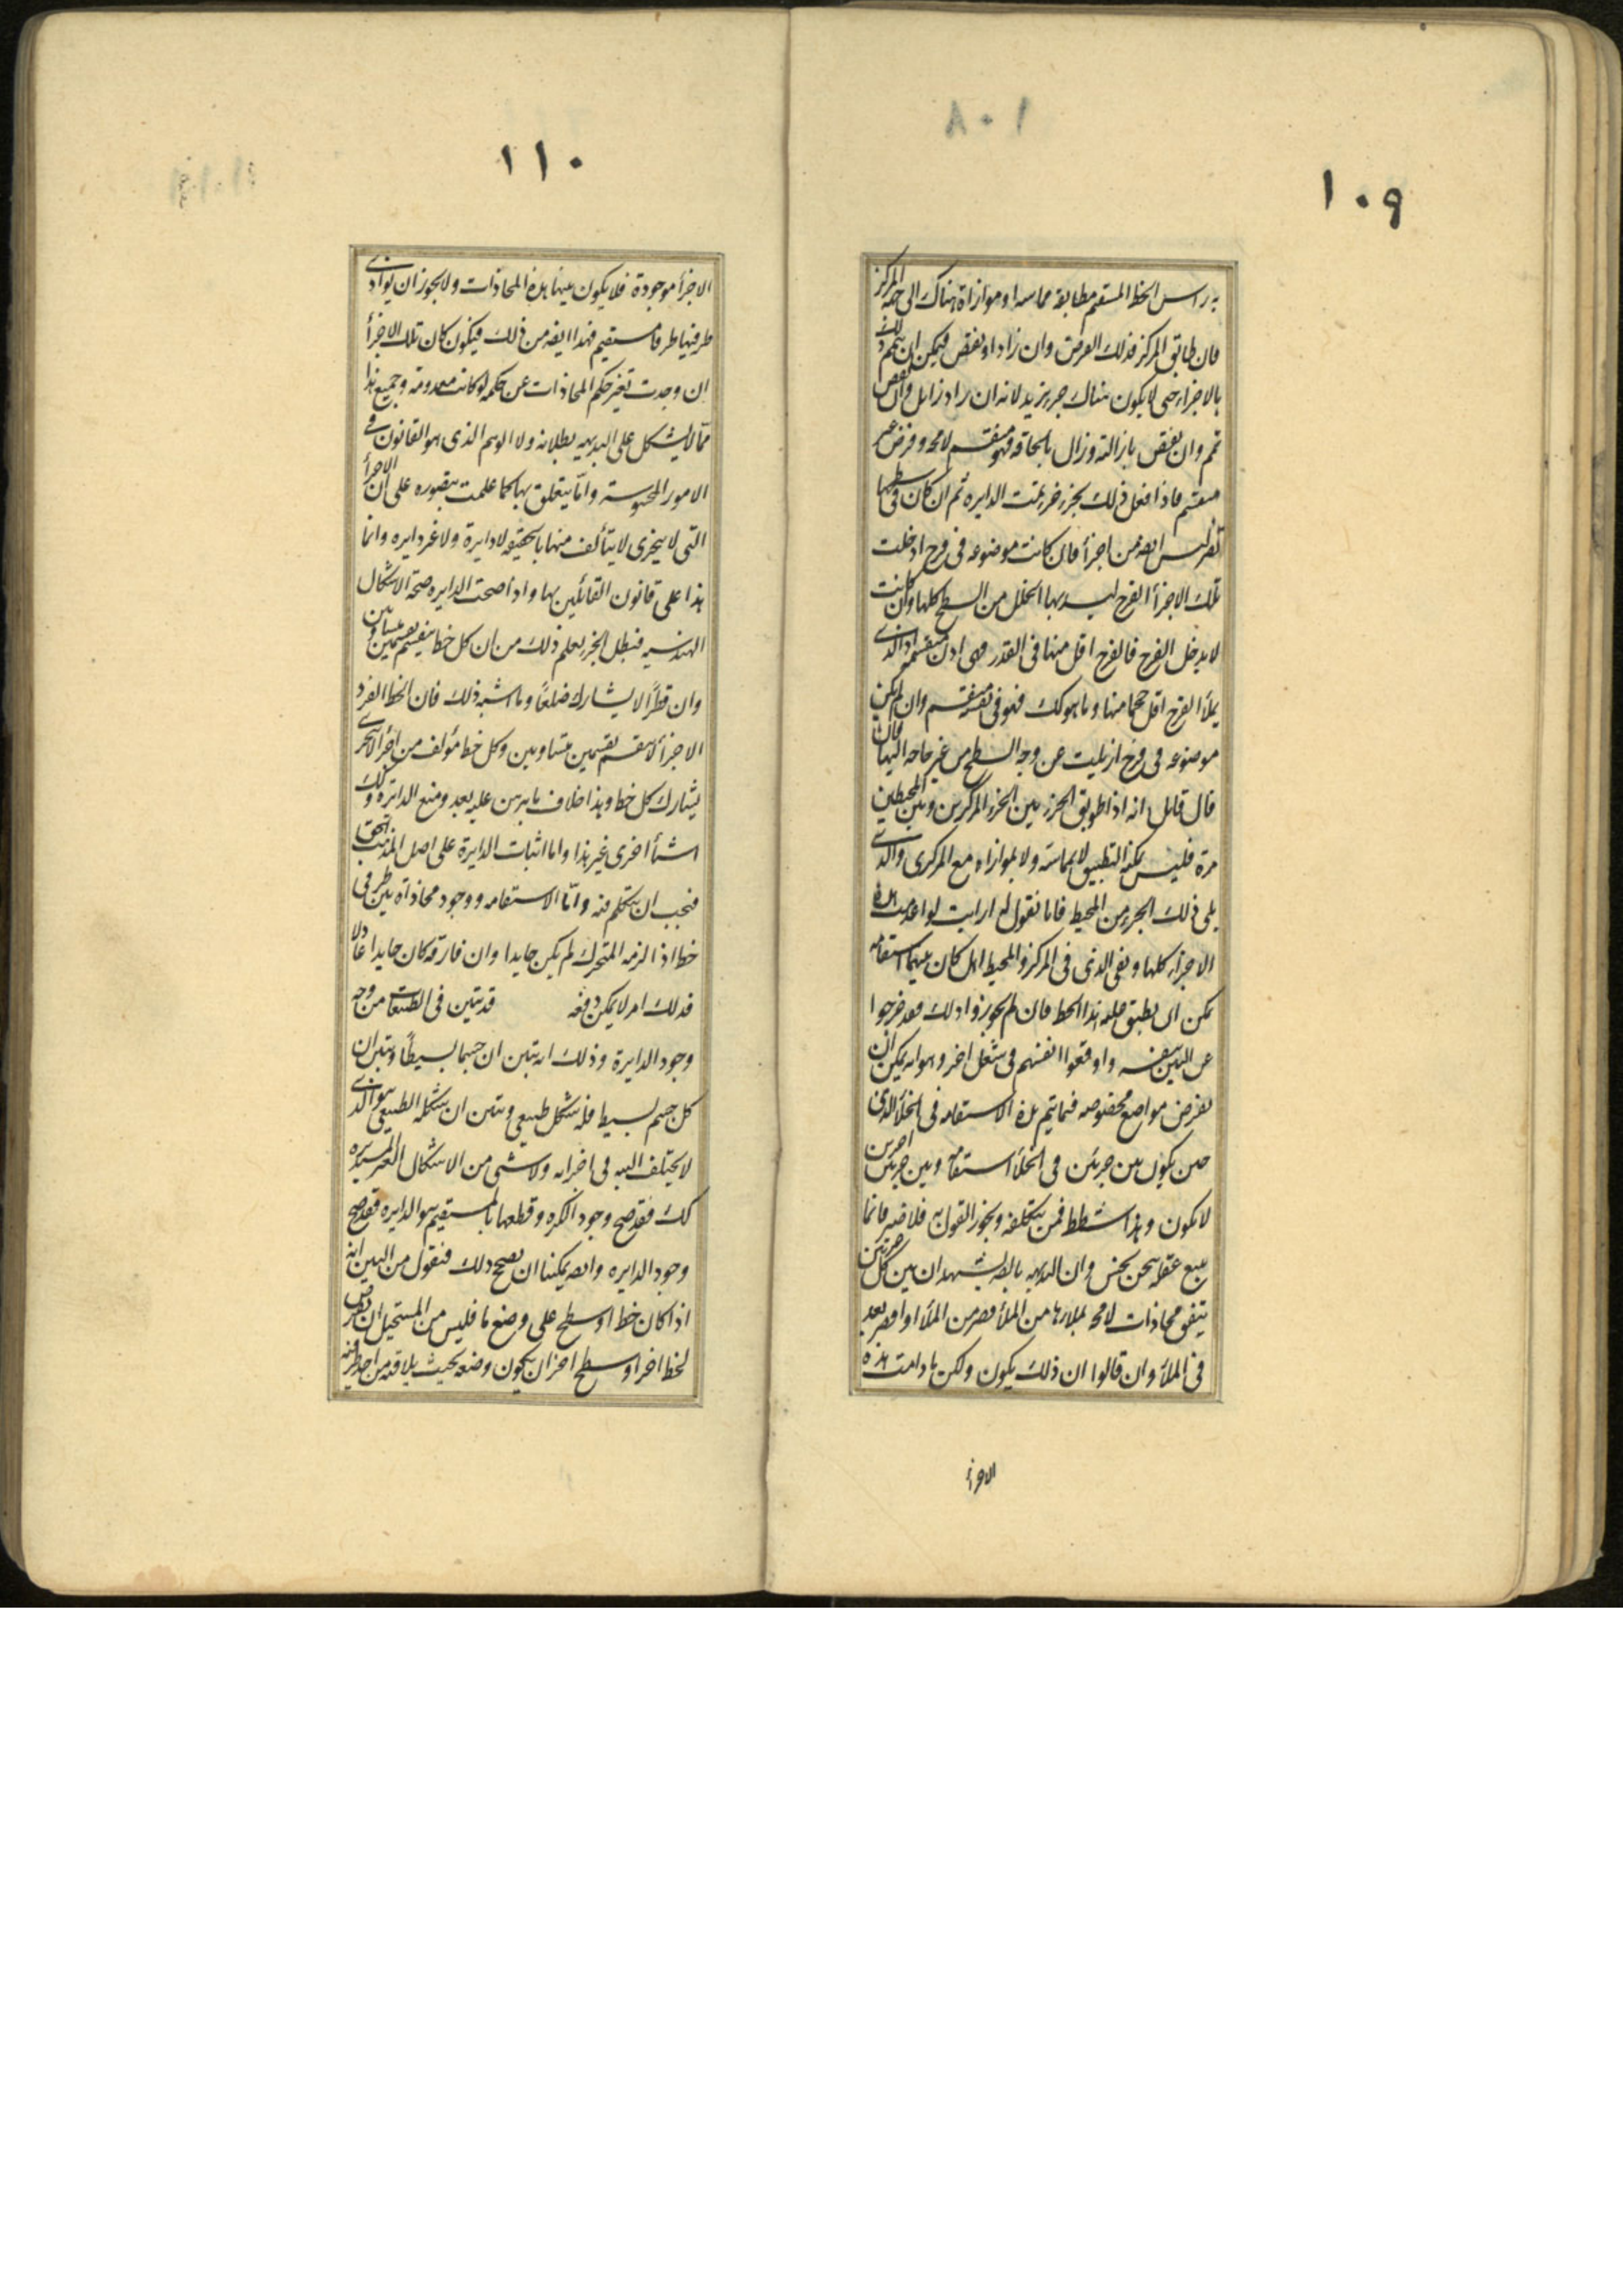 ١٠٩
به راس الخط المستقيم مطابقة مماسه او موازاة هناك الى جهة المركز
فان طابق المركز فذلك الغرض وان زاد او نقص فيمكن ان يتمم ذلك
بالاجزاء حتى لا يكون هناك جزء يزيد لانه ان زاد زايل وان نقص
تمم وان نقص بازالته وزال بالحاقه فهو منقسم لا محه وفرض غير
منقسم فاذا فعل ذلك بجزء جزء تمت الدايره ثم ان كان فى سطحها
تضريس ايضه من اجزأ فان كانت موضوعه فى فرج ادخلت
تلك الاجزأ الفرج ليسد بها الخلل من السطح كلها وان كانت
لا يدخل الفرج فالفرج اقل منها فى القدر فهى اذن منقسمه اذ الذى
يملأ الفرج اقل حجما منها وما هو كك فهو فى نفسه منقسم وان لم يكن
موضوعه فى فرج ازيلت عن وجه السطح من غير حاجه اليها فان
قال قايل انه اذا طوبق الجزء بين الجزء المركزين وبين المحيطين
مرة فليس يمكن التطبيق لا بمماسة ولا بموازاه مع المركزى والذى
يلى ذلك الجزء من المحيط فانا نقول له ارايت لو اعدمت هذه
الاجزاء كلها وبقى الذى فى المركز والمحيط اهل كان بينهما استقامه
يمكن ان يطبق عليه هذا الخط فان لم يجوزوا ذلك فقد خرجوا
عن البين بنفسه واوقعوا انفسهم فى شغل اخر وهو انه يمكن ان
يفرض مواضع مخصوصه فيما يتم هذه الاستقامه فى الخلأ الذى
حتى يكون بين جزئين فى الخلأ استقامه وبين جزئين اخرين
لا يكون وهذا شطط فمن يتكلفه ويجوز القول به فلا ضير فانما
يبيع عقله بثمن بخس وان البديهه بالضه يشهد ان بين كل جزئين
يتفق محاذات لا محه يملاءها من الملأ اقصر من الملأ او اقصر بعد
فى الملأ وان قالوا ان ذلك يكون ولكن ما دامت هذه
الاجزأ
١١٠
الاجزأ موجودة فلا يكون بينها هذه المحاذات ولا يجوز ان يوازى
طرفيها طرفا مستقيم فهذا ايضه من ذلك فيكون كان تلك الاجزأ
ان وجدت تغير حكم المحاذات عن حكمه لو كانت معدومة وجميع هذا
ممّا لا يشكل على البديهيه بطلانه ولا الوهم الذى هو القانون فى
الامور المحسوسة وامّا يتعلق بها كما علمت يتصوره على ان الاجزأ
التى لا يتجزى لا يتألف منها بالحقيقه لا دايرة ولا غير دايره وانما
هذا على قانون القائلين بها واذا صحت الدايره صحة الاشكال
الهندسيه فبطل الجزء يعلم ذلك من ان كل خط ينقسم بقسمين متساويين
وان قطرًا لا يشارك ضلعًا وما اشبه ذلك فان الخط الفرد
الاجزأ لا ينقسم بقسمين متساويين وكل خط مؤلف من اجزأ لا يتجزى
يشارك كل خط وهذا خلاف ما يبرهن عليه بعد ومنع الدايره وكك
اشيأ اخرى غير هذا واما اثبات الدايرة على اصل المذهب الحق
فيجب ان يتكلم فيه وامّا الاستقامه ووجود محاذاة بين طرفى
خط اذا لزمه المتحرك لم يكن حايدا وان فارقه كان حايدا عادلا
فذلك امر لا يمكن دفعه قد تبين فى الطبيعيات من وجه
وجود الدايرة وذلك انه تبين ان جسما بسيطًا وتبين ان
كل جسم بسيط فله شكل طبيعى وتبين ان شكله الطبيعى هو الذى
لا يختلف البته فى اجزائه ولا شى من الاشكال الغير المستديره
كك فقد صح وجود الكره وقطعها بالمستقيم هو الدايره فقد صح
وجود الدايره وايضه يمكننا ان نصحح ذلك فنقول من البين انه
اذا كان خط او سطح على وضع ما فليس من المستحيل ان يفرض
لخط اخر او سطح اخر ان يكون وضعه بحيث يلاقيه من احد طرفيه